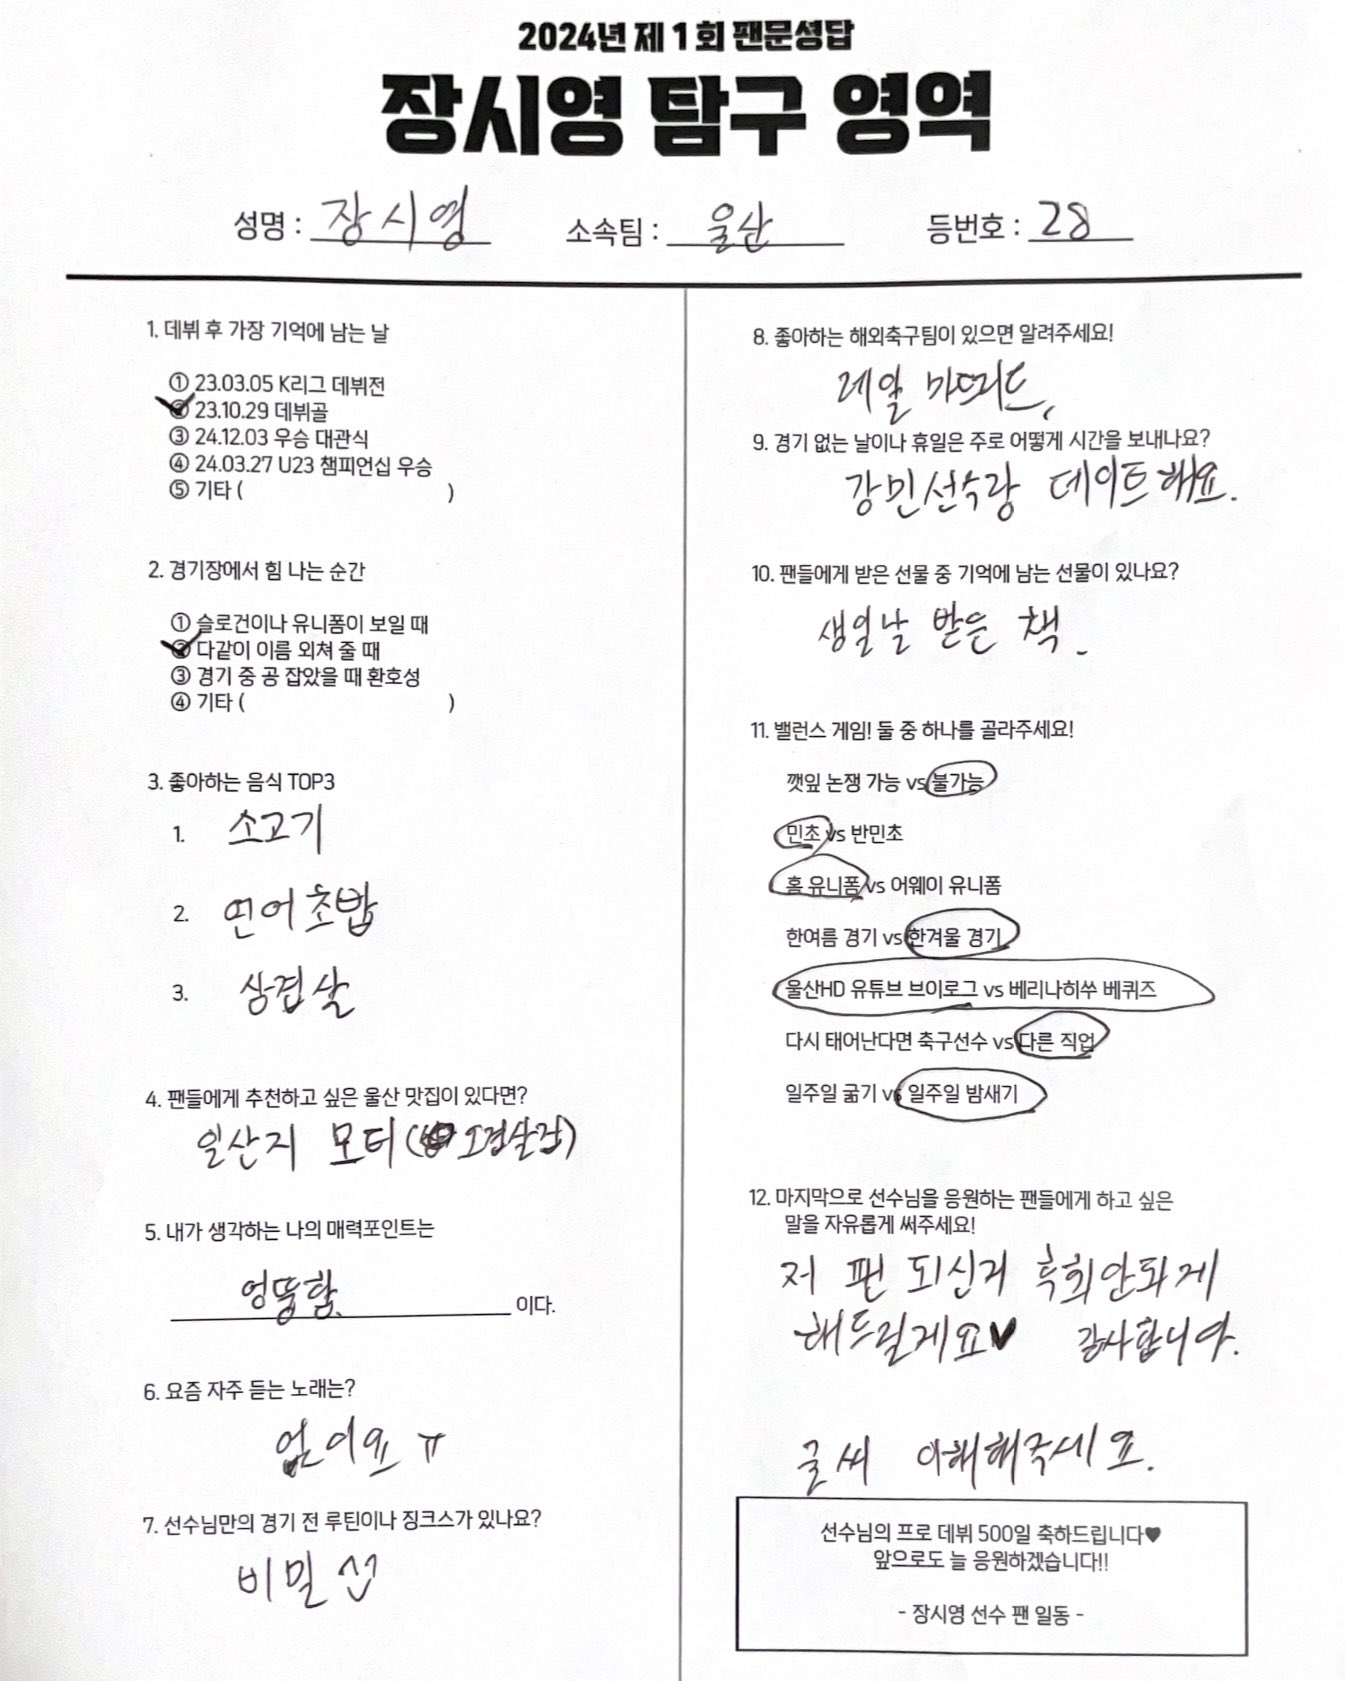 2024년 제 1 회 팬문성답
장시영 탐구 영역
성명 : 장시영 소속팀 : 울산 등번호 : 28
1. 데뷔 후 가장 기억에 남는 날
① 23.03.05 K리그 데뷔전
② 23.10.29 데뷔골
③ 24.12.03 우승 대관식
④ 24.03.27 U23 챔피언십 우승
⑤ 기타 ( )
2. 경기장에서 힘 나는 순간
① 슬로건이나 유니폼이 보일 때
② 다같이 이름 외쳐 줄 때
③ 경기 중 공 잡았을 때 환호성
④ 기타 ( )
3. 좋아하는 음식 TOP3
1. 소고기
2. 연어초밥
3. 삼겹살
4. 팬들에게 추천하고 싶은 울산 맛집이 있다면?
일산지 모터 (오겹살집)
5. 내가 생각하는 나의 매력포인트는
엉뚱함. 이다.
6. 요즘 자주 듣는 노래는?
없어요 ㅠ
7. 선수님만의 경기 전 루틴이나 징크스가 있나요?
비밀
8. 좋아하는 해외축구팀이 있으면 알려주세요!
레알 마드리드,
9. 경기 없는 날이나 휴일은 주로 어떻게 시간을 보내나요?
강민선수랑 데이트해요.
10. 팬들에게 받은 선물 중 기억에 남는 선물이 있나요?
생일날 받은 책.
11. 밸런스 게임! 둘 중 하나를 골라주세요!
깻잎 논쟁 가능 vs 불가능
민초 vs 반민초
홈 유니폼 vs 어웨이 유니폼
한여름 경기 vs 한겨울 경기
울산HD 유튜브 브이로그 vs 베리나히쑤 베퀴즈
다시 태어난다면 축구선수 vs 다른 직업
일주일 굶기 vs 일주일 밤새기
12. 마지막으로 선수님을 응원하는 팬들에게 하고 싶은
말을 자유롭게 써주세요!
저 팬 되신거 후회안되게
해드릴게요♥ 감사합니다.
글씨 이해해주세요.
선수님의 프로 데뷔 500일 축하드립니다♥
앞으로도 늘 응원하겠습니다!!
- 장시영 선수 팬 일동 -